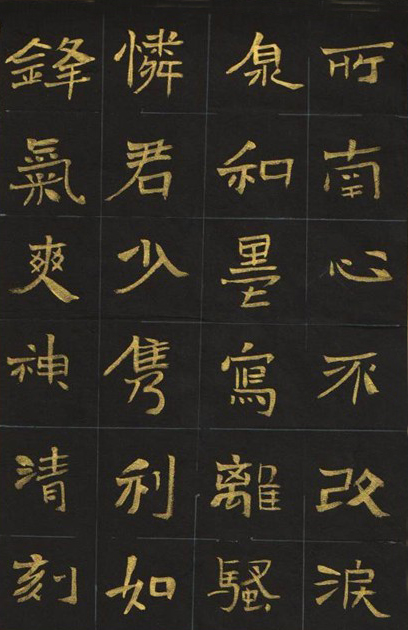 所南心不改淚
泉和墨寫離騷
憐君少雋利如
鋒氣爽神清刻